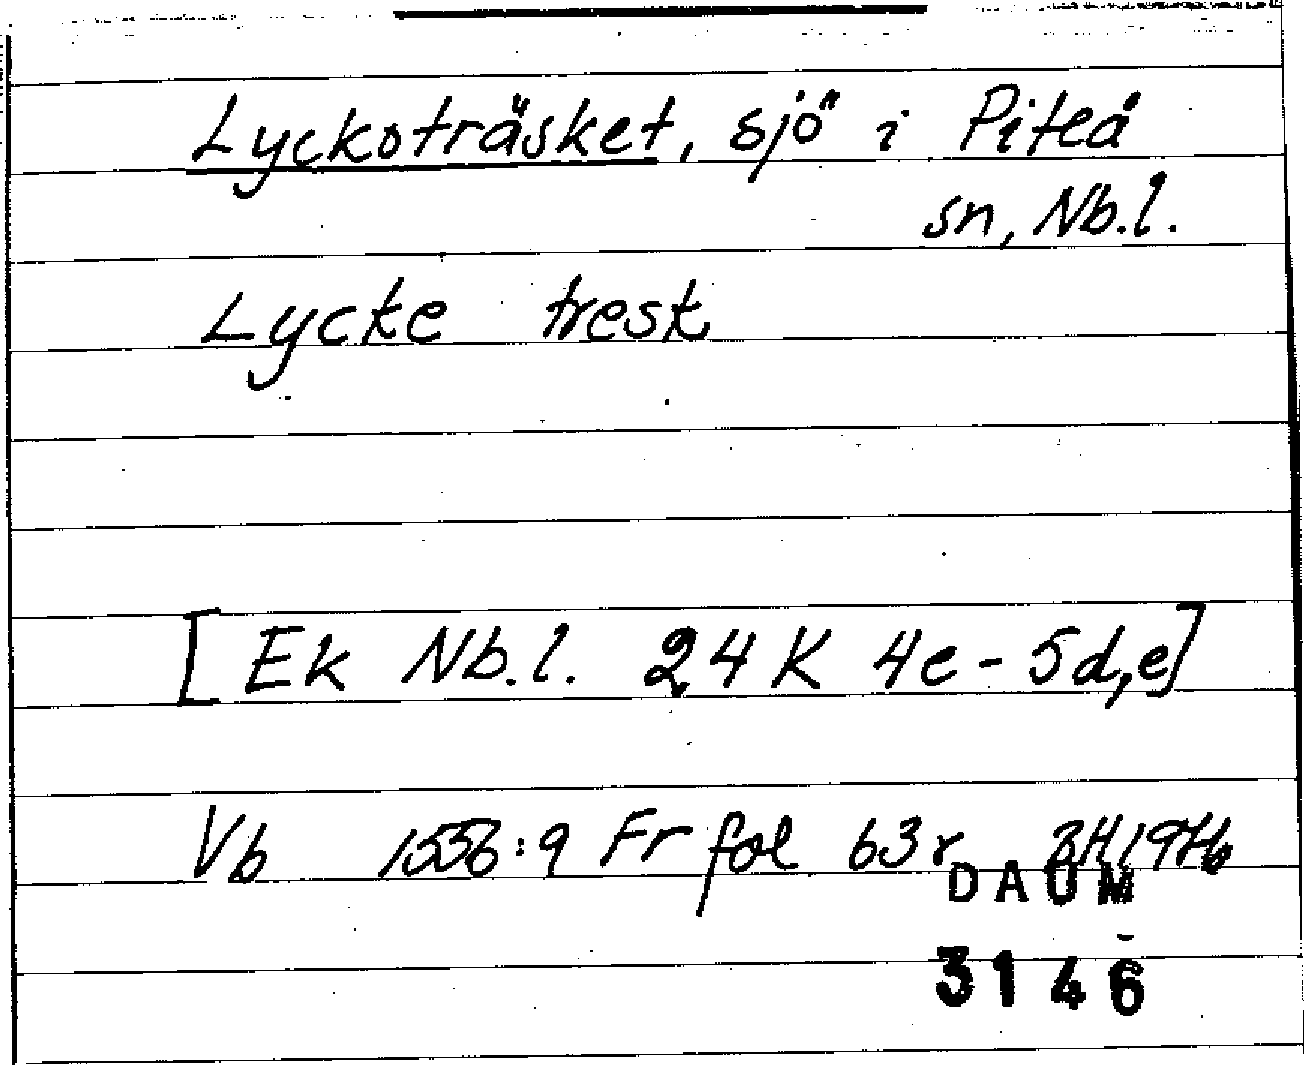 Lyckoträsket, sjö i Piteå
sn, Nb.l.
Lycke tresk
[Ek Nb.l. 24 K 4e - 5d,e]
Vb 1556:9 Fr fol 63r BH 1976
DAUM
3146